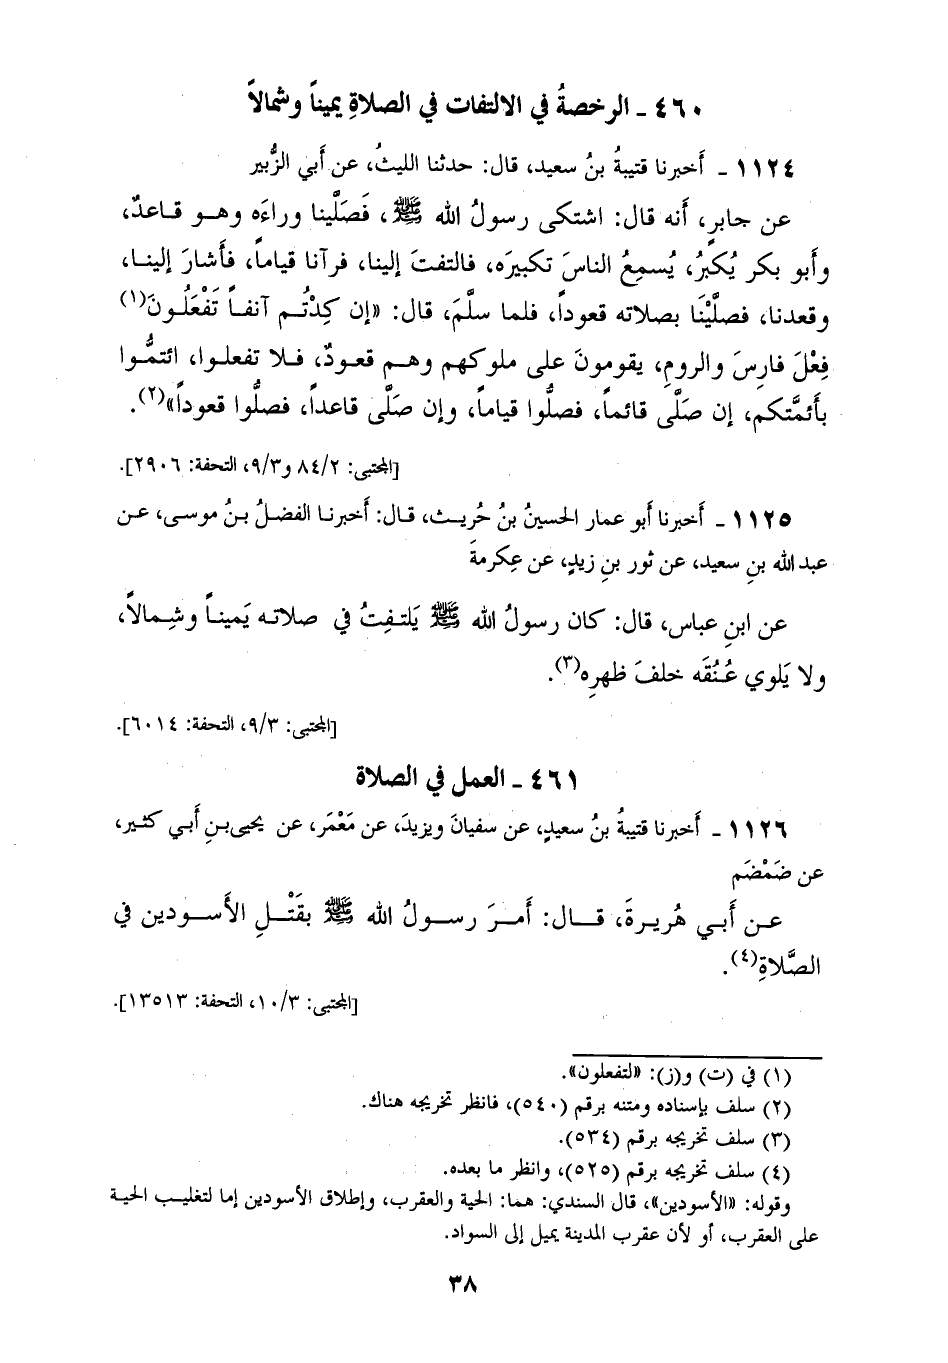 ٤٦٠ ـ الرخصةُ في الالتفات في الصلاةِ يميناً وشمالاً
١١٢٤ ـ أخبرنا قتيبةُ بنُ سعيد، قال: حدثنا الليثُ، عن أبي الزُّبير
عن جابرٍ، أنه قال: اشتكى رسولُ الله ﷺ، فَصَلَّينا وراءَه وهـو قـاعدٌ،
وأبو بكر يُكَبِّرُ، يُسمِعُ الناسَ تكبيرَه، فالتفتَ إلينا، فرآنا قياماً، فأشارَ إلينـا،
وقعدنا، فصلَّيْنَا بصلاته قعوداً، فلما سلَّمَ، قال: «إن كِدْتُـم آنفـاً تَفْعَلُـونَ(١)
فِعْلَ فارِسَ والرومِ، يقومونَ على ملوكهم وهـم قعـودٌ، فـلا تفعلـوا، ائتمُّـوا
بأئمَّتكم، إن صَلَّى قائماً، فصلُّوا قياماً، وإن صَلَّى قاعداً، فصلُّوا قعوداً»(٢).
[المجتبى: ٨٤/٢ و٩/٣، التحفة: ٢٩٠٦].
١١٢٥ ـ أخبرنا أبو عمار الحسينُ بنُ حُريـث، قـال: أخبرنـا الفضـلُ بـنُ موسـى، عـن
عبد الله بنِ سعيد، عن ثور بنِ زيدٍ، عن عِكرمةَ
عن ابنِ عباس، قال: كان رسولُ الله ﷺ يَلتـفِـتُ في صلاتـه يَمينـاً وشِـمالاً،
ولا يَلوي عُـنُقَه خلفَ ظهرِه(٣).
[المجتبى: ٩/٣، التحفة: ٦٠١٤].
٤٦١ ـ العمل في الصلاة
١١٢٦ ـ أخبرنا قتيبةُ بنُ سعيدٍ، عن سفيانَ ويزيدَ، عن مَعْمَر، عن يحيى بنِ أبي كثير،
عن ضَمْضَم
عـن أَبـي هُريـرةَ، قـال: أَمـرَ رسـولُ الله ﷺ بقَتْـلِ الأَسـودين في
الصَّلاةِ(٤).
[المجتبى: ١٠/٣، التحفة: ١٣٥١٣].
(١) في (ت) و(ز): «لتفعلون».
(٢) سلف بإسناده ومتنه برقم (٥٤٠)، فانظر تخريجه هناك.
(٣) سلف تخريجه برقم (٥٣٤).
(٤) سلف تخريجه برقم (٥٢٥)، وانظر ما بعده.
وقوله: «الأسودين»، قال السندي: هما: الحية والعقرب، وإطلاق الأسودين إما لتغليب الحية
على العقرب، أو لأن عقرب المدينة يميل إلى السواد.
٣٨